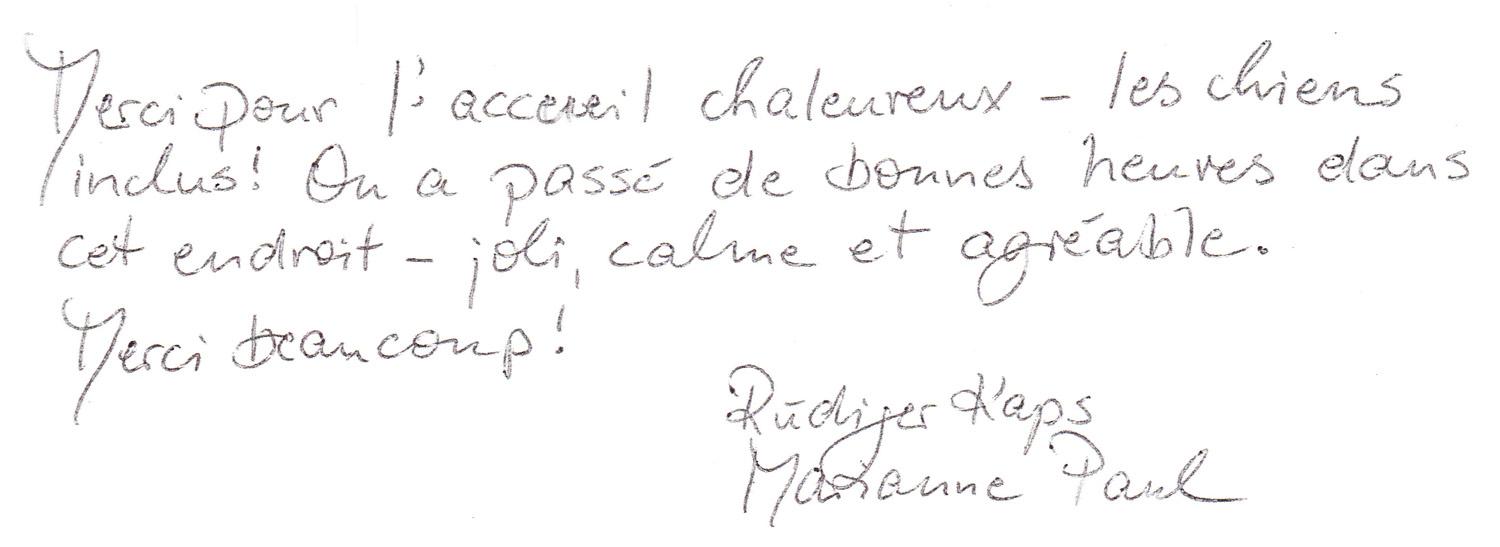 Merci pour l'accueil chaleureux – les chiens
inclus! On a passé de bonnes heures dans
cet endroit – joli, calme et agréable.
Merci beaucoup!
Rüdiger Kaps
Marianne Paul